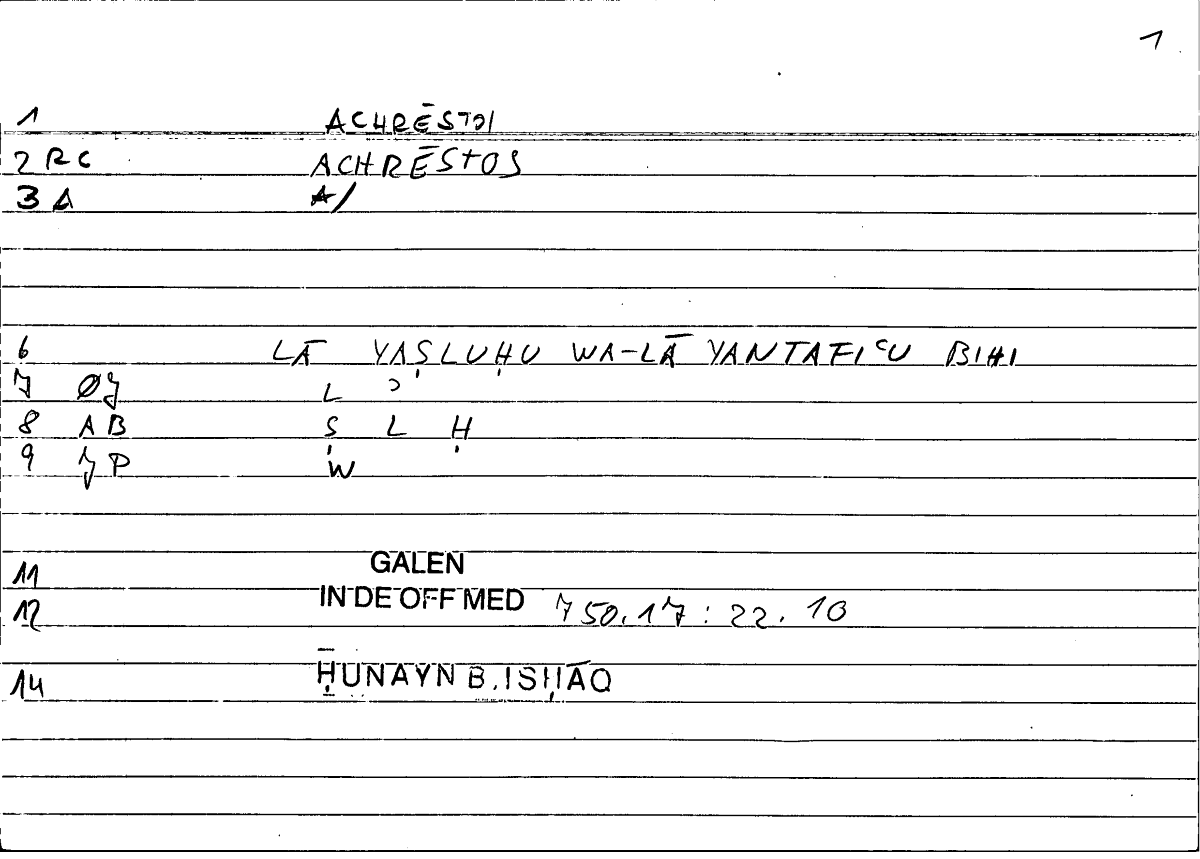 1
1 ACHRĒSTOI
2 RC ACHRĒSTOS
3 A A/
6 LĀ YAṢLUḤU WA-LĀ YANTAFIʿU BIHI
7 ØJ L ʾ
8 AB Ṣ L Ḥ
9 JP W
11 GALEN
12 IN DE OFF MED 750.17 : 22.10
14 ḤUNAYN B. ISḤĀQ